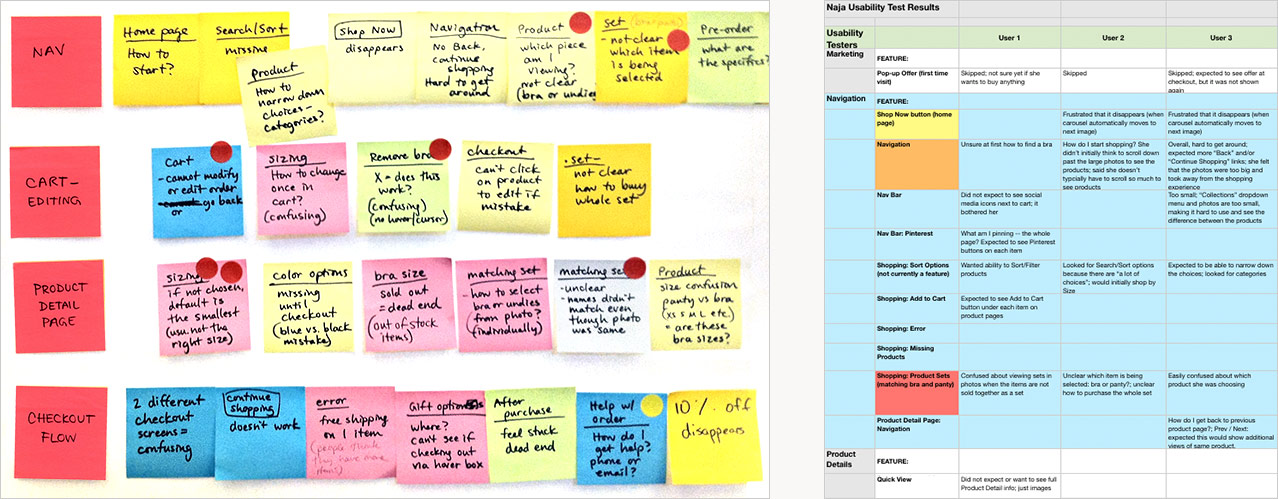 NAV
Home page
How to
start?
Search/Sort
missing
Product
How to
narrow down
choices—
categories?
Shop Now
disappears
Navigation
No Back,
continue
shopping
Hard to get
around
Product
which piece
am I
viewing?
not clear
(bra or undies
set
- not clear
which item
is being
selected
Pre-order
what are
the specifics?
CART-
EDITING
Cart
- cannot modify
or edit order
or go back
sizing
How to change
once in
cart?
(confusing)
Remove bra
X = does this
work?
(confusing)
(no hover/cursor)
checkout
can't click
on product
to edit if
mistake
• set-
not clear
how to buy
whole set
PRODUCT
DETAIL
PAGE
sizing
if not chosen,
default is
the smallest
(usu. not the
right size)
Color options
missing
until
checkout
(blue vs. black
mistake)
bra size
sold out
= dead end
(out of stock
items)
matching set
- how to select
bra or undies
from photo?
(individually)
matching set
- unclear
- names didn't
match even
though photo
was same
Product
size confusion
panty vs bra
(xs S M L etc.)
• are these
bra sizes?
CHECKOUT
FLOW
2 different
checkout
screens =
confusing
Continue
shopping
doesn't work
error
free shipping
on 1 item
Gift options
where?
can't see if
checking out
via hover box
After
purchase
feel stuck
dead end
Help w/
order
How do I
get help?
phone or
email?
10% off
disappears
Naja Usability Test Results
Usability
Testers
User 1
User 2
User 3
Marketing
FEATURE:
Pop-up Offer (first time
visit)
Skipped; not sure yet if she
wants to buy anything
Skipped
Skipped; expected to see offer at
checkout, but it was not shown
again
Navigation
FEATURE:
Shop Now button (home
page)
Frustrated that it disappears (when
carousel automatically moves to
next image)
Frustrated that it disappears (when
carousel automatically moves to
next image)
Navigation
Unsure at first how to find a bra
How do I start shopping? She
didn't initially think to scroll down
past the large photos to see the
products; said she doesn't
typcially have to scroll so much to
see products
Overall, hard to get around;
expected more "Back" and/or
"Continue Shopping" links; she felt
that the photos were too big and
took away from the shopping
experience
Nav Bar
Did not expect to see social
media icons next to cart; it
bothered her
Too small; "Collections" dropdown
menu and photos are too small,
making it hard to use and see the
difference between the products
Nav Bar: Pinterest
What am I pinning -- the whole
page? Expected to see Pinterest
buttons on each item
Shopping: Sort Options
(not currently a feature)
Wanted ability to Sort/Filter
products
Looked for Search/Sort options
because there are "a lot of
choices"; would initially shop by
Size
Expected to be able to narrow down
the choices; looked for categories
Shopping: Add to Cart
Expected to see Add to Cart
button under each item on
product pages
Shopping: Error
Shopping: Missing
Products
Shopping: Product Sets
(matching bra and panty)
Confused about viewing sets in
photos when the items are not
sold together as a set
Unclear which item is being
selected: bra or panty?; unclear
how to purchase the whole set
Easily confused about which
product she was choosing
Product Detail Page:
Navigation
How do I get back to previous
product page?; Prev / Next:
expected this would show additional
views of same product.
Product
Details
FEATURE:
Quick View
Did not expect or want to see full
Product Detail info; just images